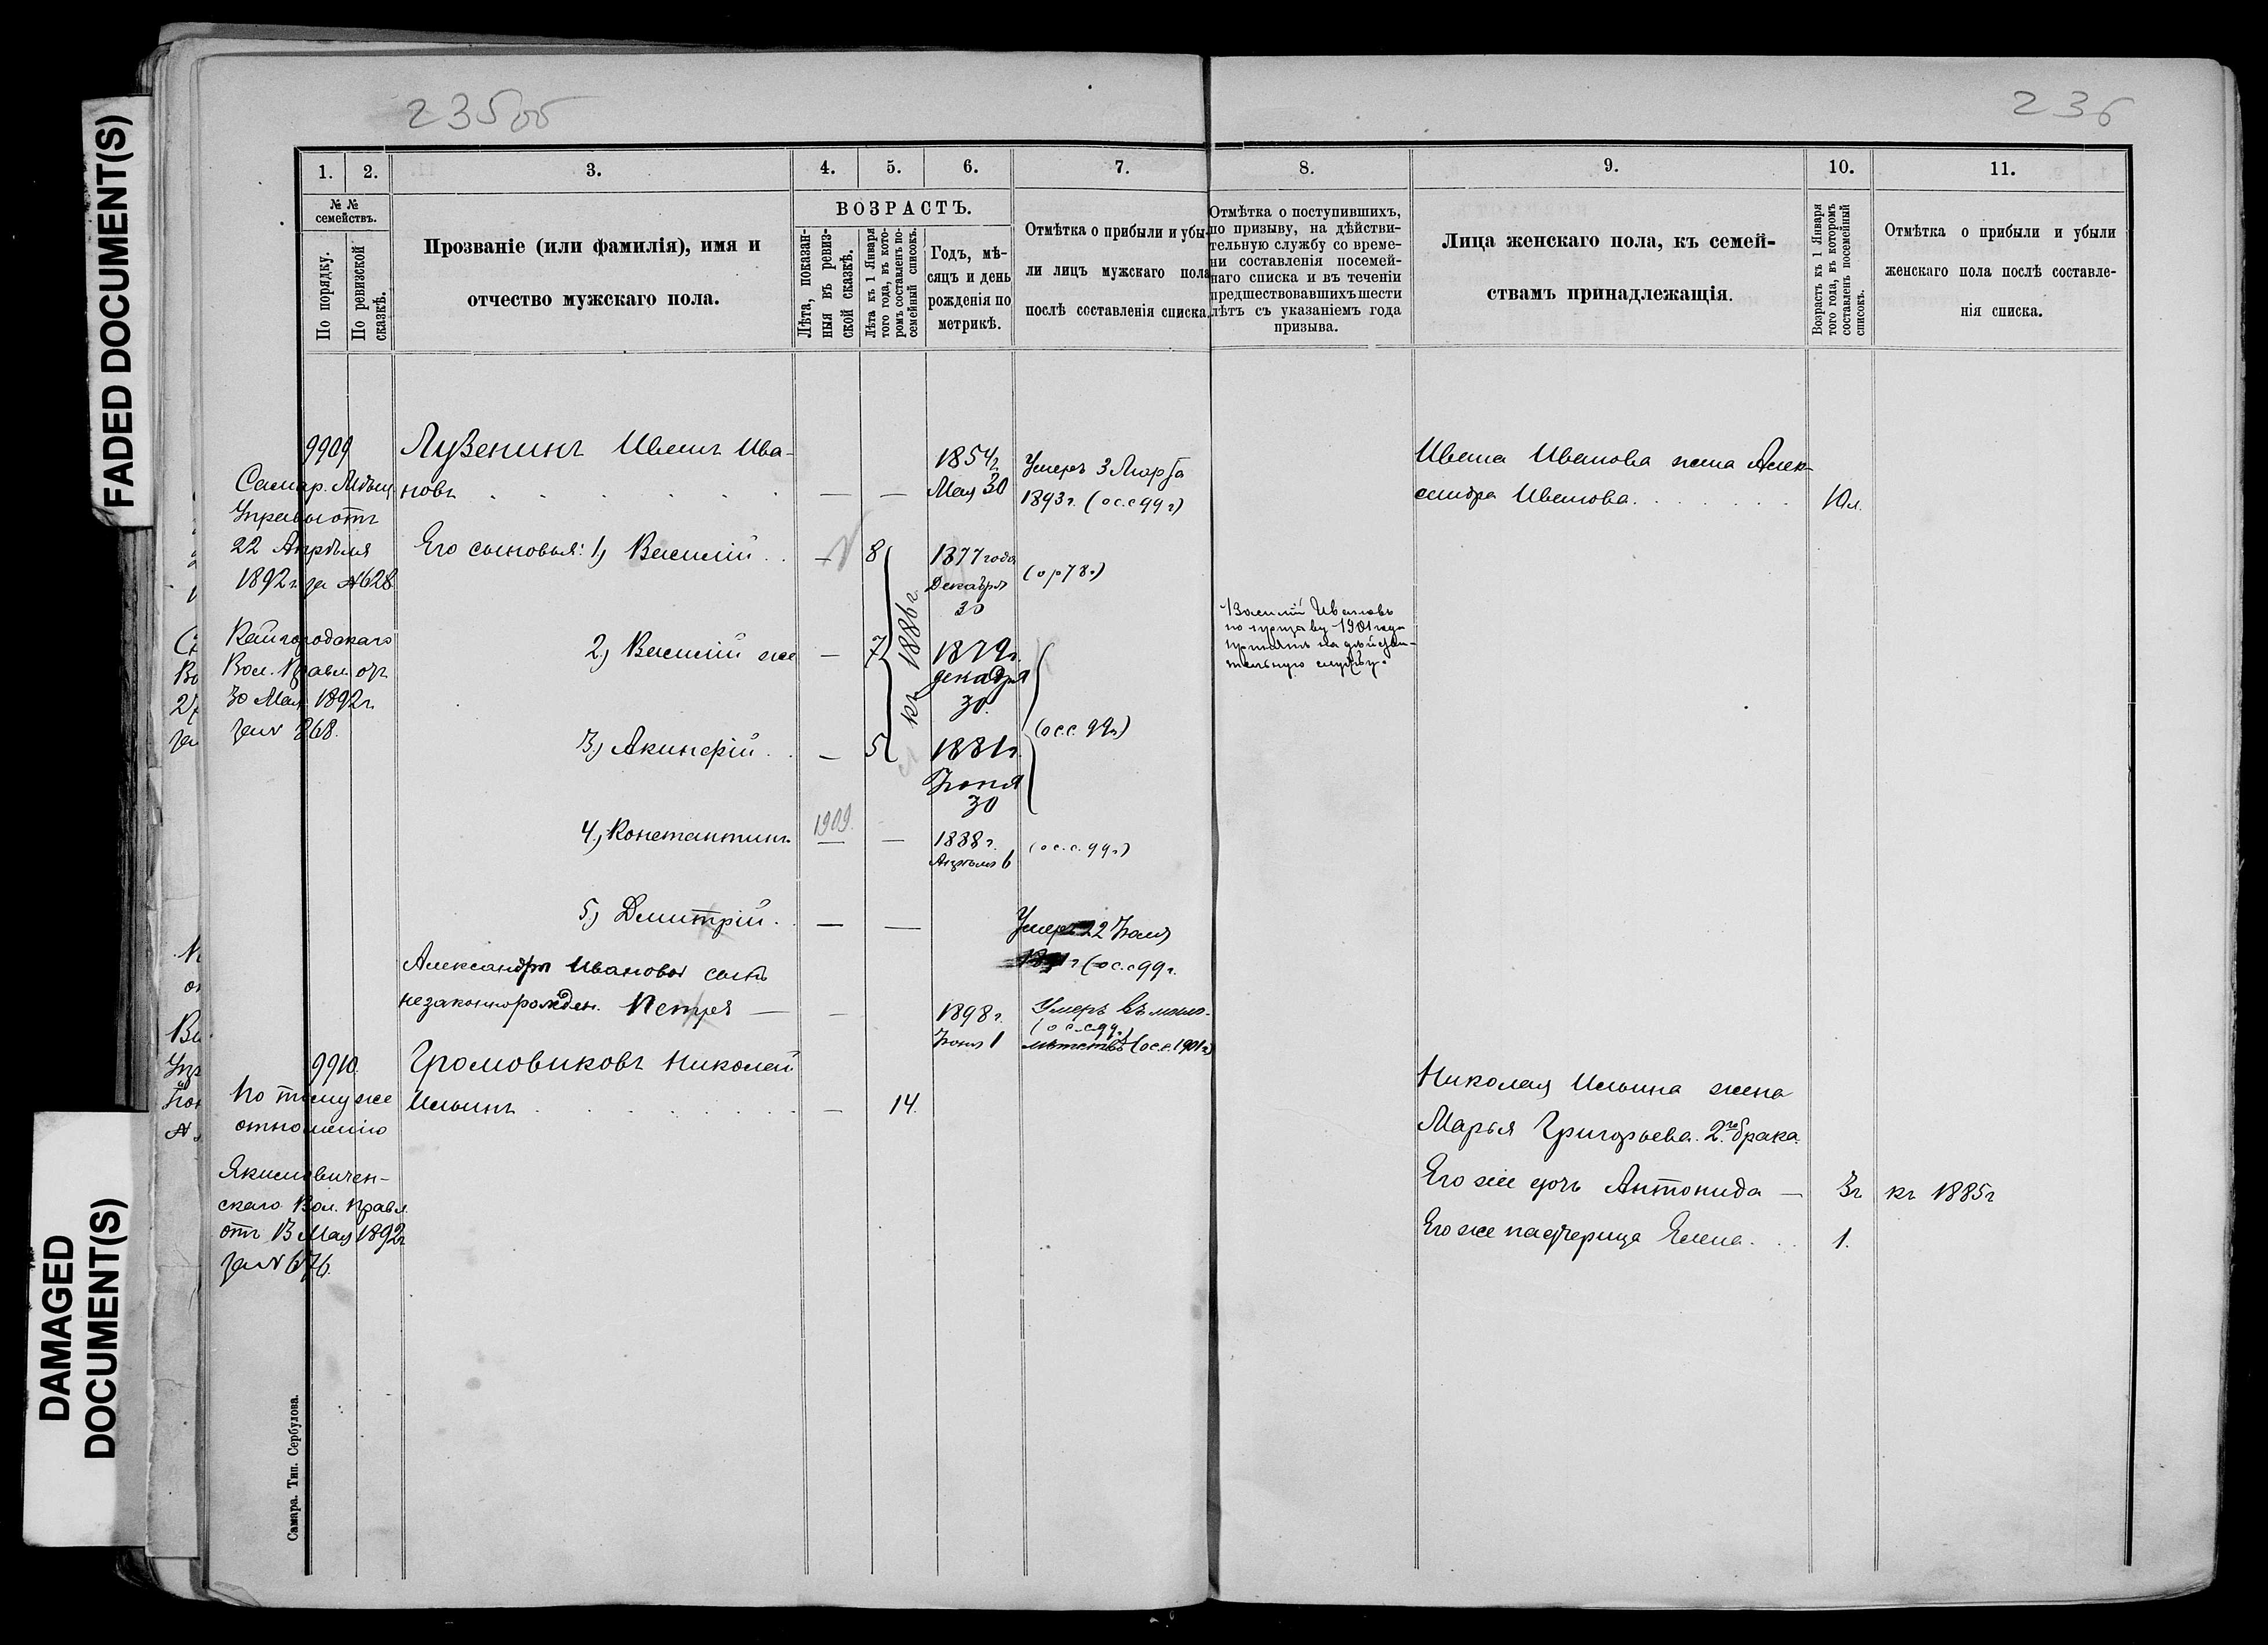 FADED DOCUMENT(S)
DAMAGED
DOCUMENT(S)
235об
236
1.
2.
3.
4.
5.
6.
7.
8.
9.
10.
11.
№ №
семействъ.
По порядку.
По ревизской
сказкѣ.
Прозваніе (или фамилія), имя и
отчество мужскаго пола.
ВОЗРАСТЪ.
Лѣта, показан-
ныя въ ревиз-
ской сказкѣ.
Лѣта къ 1 Января
того года, въ кото-
ромъ составленъ по-
семейный списокъ.
Годъ, мѣ-
сяцъ и день
рожденія по
метрикѣ.
Отмѣтка о прибыли и убы-
ли лицъ мужскаго пола
послѣ составленія списка.
Отмѣтка о поступившихъ,
по призыву, на дѣйстви-
тельную службу со време-
ни составленія посемей-
наго списка и въ теченіи
предшествовавшихъ шести
лѣтъ съ указаніемъ года
призыва.
Лица женскаго пола, къ семей-
ствамъ принадлежащія.
Возрастъ къ 1 Января
того года, въ которомъ
составленъ посемейный
списокъ.
Отмѣтка о прибыли и убыли
женскаго пола послѣ составле-
нія списка.
9909
Самар. Мѣщ.
Управы отъ
22 Апрѣля
1892 г. за №628
Вол. Правл. от
30 Мая 1892 г.
за № 268.
Лузенинъ Иванъ Ива-
новъ
— —
1854 г.
Мая 30
Умеръ 3 Марта
1893 г. (о с. с 99 г)
Ивана Иванова жена Алек-
сандра Иванова.
Его сыновья: 1) Василій
— 8
1877 года
Декабря
30
(о р 78 г.)
2) Василій же
— 7
къ 1886 г.
1879 г.
декабря
30.
Василій Ивановъ
по призыву 1901 года
принятъ на дѣйстви-
тельную службу.
3) Акинфій
— 5
1881 г.
Іюня
30
(о с. с. 99 г)
4) Константинъ
1909.
— —
1888 г.
Апрѣля 6
(о с. с. 99 г)
5) Дмитрій.
— —
Умеръ 22 Іюля
(о с. с 99 г.
Александры Ивановой сынъ
незаконнорожден. Петръ —
—
1898 г.
Іюня 1
Умеръ въ мало-
(о с. с 99 г)
лѣтствѣ (о с. с. 1901 г)
9910
По тому же
отношенію
скаго Вол. Правл.
отъ 13 Мая 1892 г
за № 676.
Громовиковъ Николай
Ильинъ
— 14.
Николая Ильина жена
Марья Григорьева. 2го брака.
Его же дочь Антонида — 3 г къ 1885 г
Его же падчерица Елена. 1.
Самара. Тип. Сербулова.